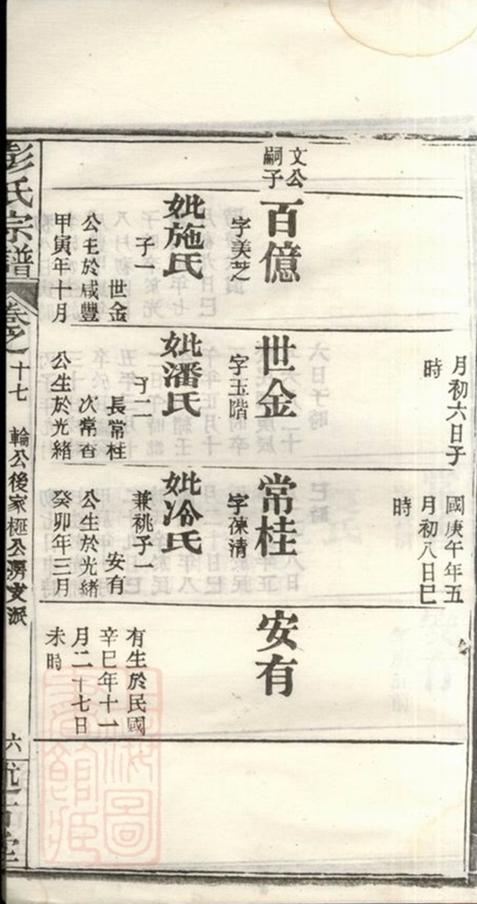 文公
嗣子
百億
字美芝
妣施氏
子一
世金
公生於咸豐
甲寅年十月
月初六日子
時
世金
字玉階
妣潘氏
子二
長常桂
公生於光緒
國庚午年五
月初八日巳
時
常桂
妣冷氏
兼祧子一
安有
公生於光緒
癸卯年三月
安有
有生於民國
辛巳年十一
月二十七日
未時
彭氏宗譜
卷之十七
輪公後家極公濟文派
六